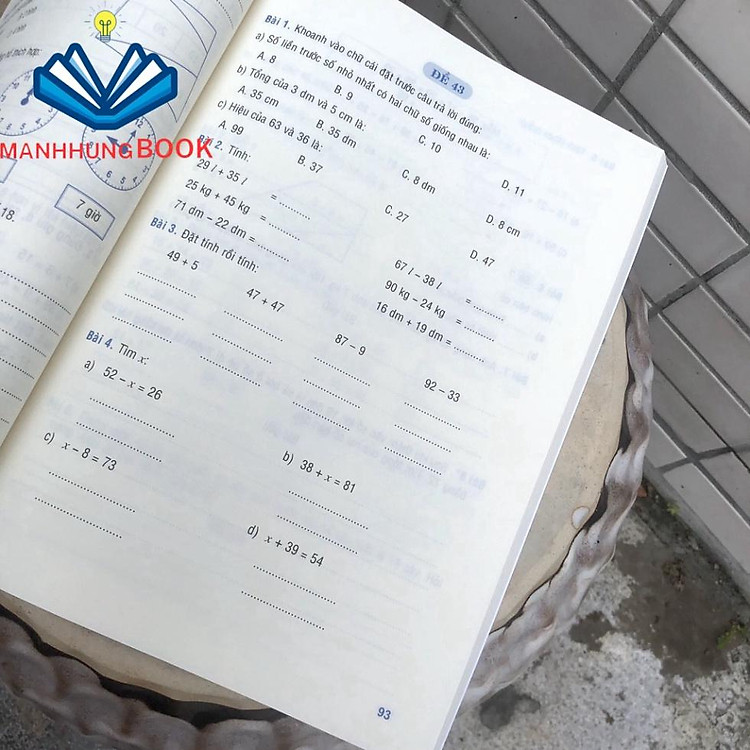 MANHHUNGBOOK
7 giờ
18.
ĐỀ 43
Bài 1. Khoanh vào chữ cái đặt trước câu trả lời đúng:
a) Số liền trước số nhỏ nhất có hai chữ số giống nhau là:
A. 8 B. 9 C. 10 D. 11
b) Tổng của 3 dm và 5 cm là:
A. 35 cm B. 35 dm C. 8 dm D. 8 cm
c) Hiệu của 63 và 36 là:
A. 99 B. 37 C. 27 D. 47
Bài 2. Tính:
29 l + 35 l = .......... 67 l – 38 l = ..........
25 kg + 45 kg = .......... 90 kg – 24 kg = ..........
71 dm – 22 dm = .......... 16 dm + 19 dm = ..........
Bài 3. Đặt tính rồi tính:
49 + 5 47 + 47 87 – 9 92 – 33
Bài 4. Tìm x:
a) 52 – x = 26 b) 38 + x = 81
c) x – 8 = 73 d) x + 39 = 54
93